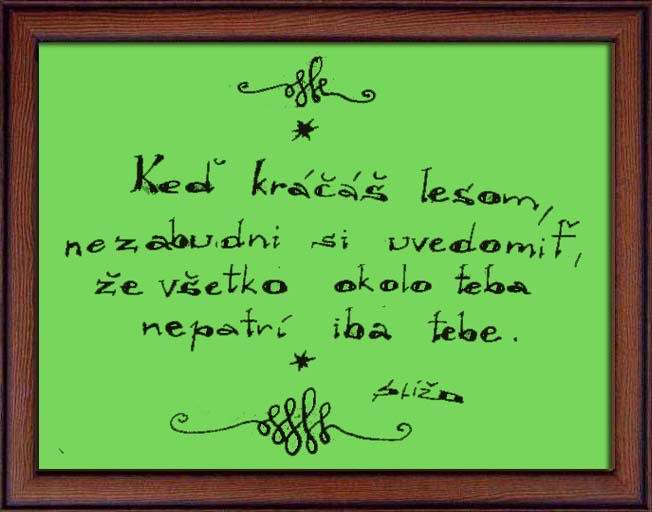 Keď kráčaš lesom,
nezabudni si uvedomiť,
že všetko okolo teba
nepatrí iba tebe.
Slížo